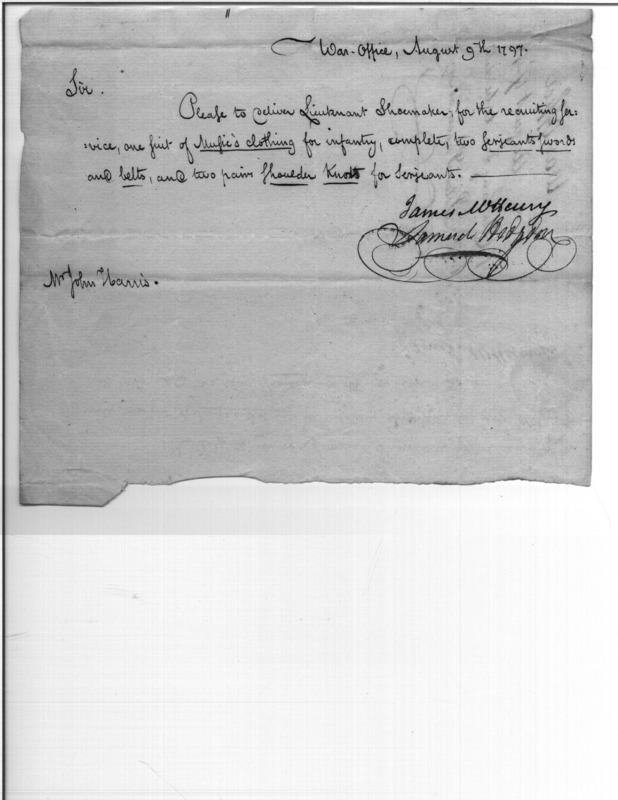 War-Office, August 9th 1797.
Sir.
Please to deliver Lieutenant Shoemaker, for the recruiting ser:
:vice, one suit of Music's clothing for infantry, complete, two Serjeants swords
and belts, and two pairs Shoulder Knots for Serjeants. ———
James McHenry
Samuel Hodgdon
Mr John Harris.